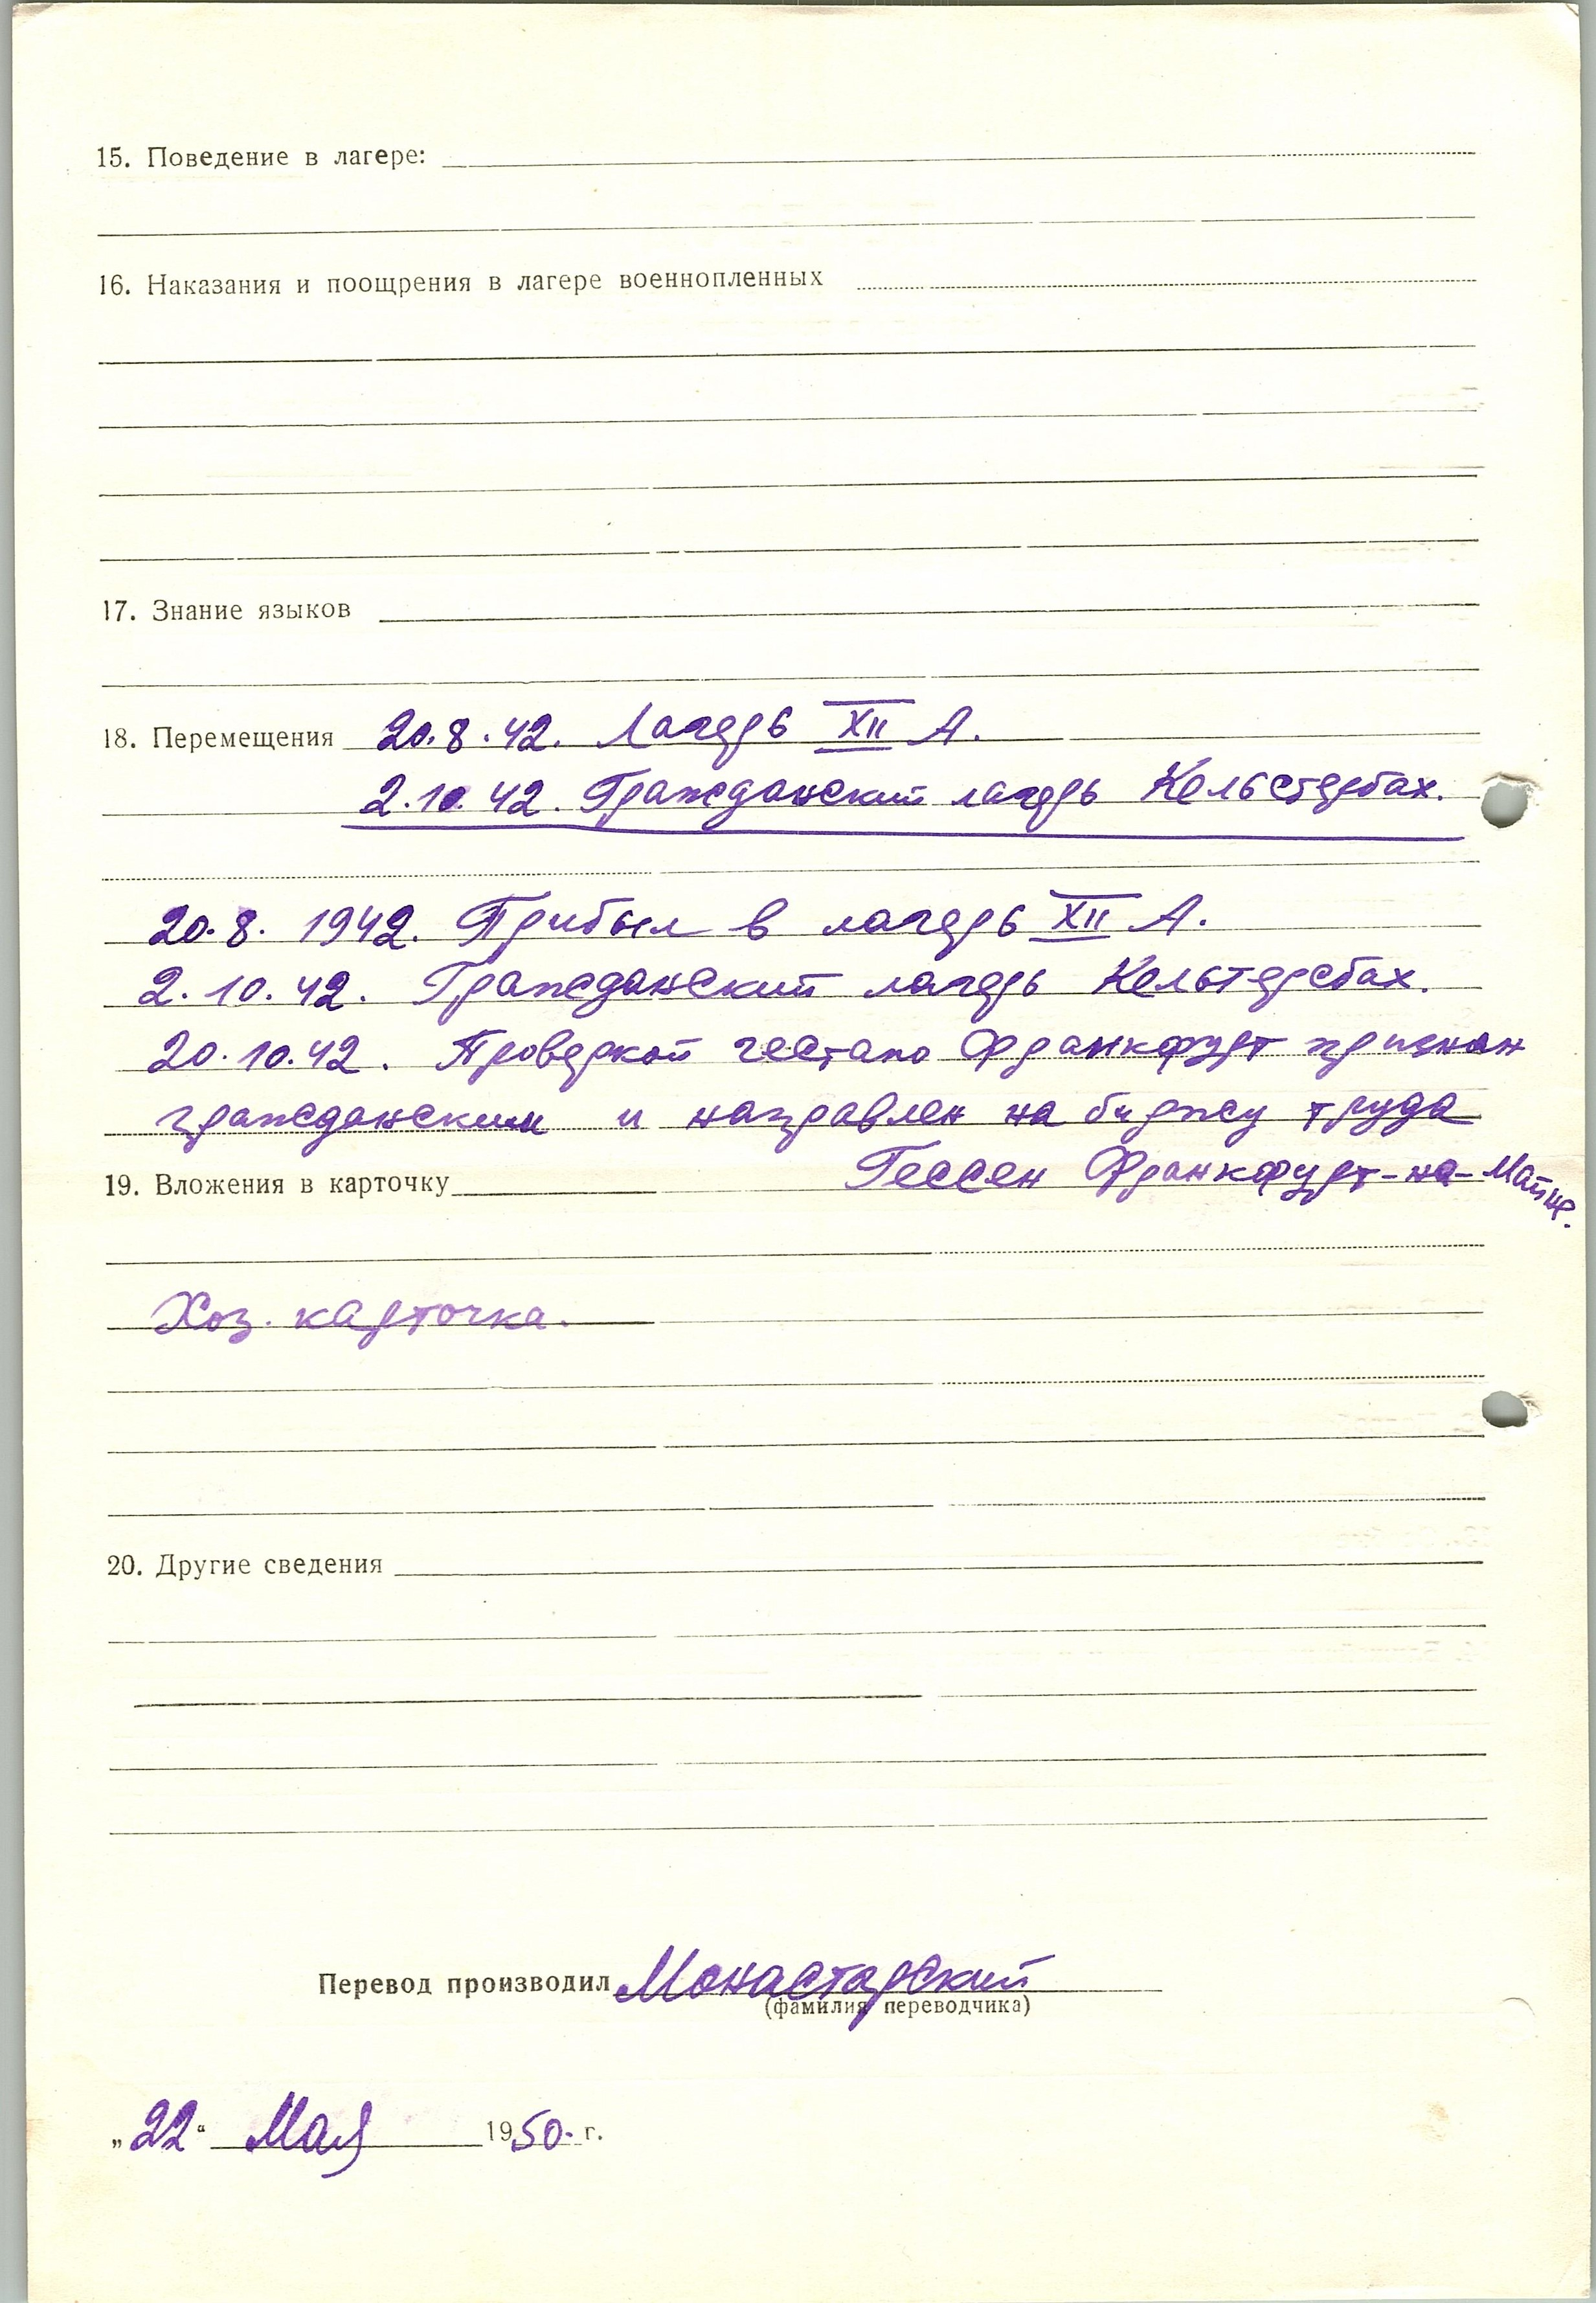 15. Поведение в лагере:
16. Наказания и поощрения в лагере военнопленных
17. Знание языков
18. Перемещения 20.8.42. Лагерь XII А.
2.10.42. Гражданский лагерь Кельстербах.
20.8.1942. Прибыл в лагерь XII А.
2.10.42. Гражданский лагерь Кельтерсбах.
20.10.42. Проверкой гестапо Франкфурт признан
гражданским и направлен на биржу труда
Гессен Франкфурт-на-Майне.
19. Вложения в карточку
Хоз. карточка.
20. Другие сведения
Перевод производил Монастарский
(фамилия переводчика)
„22“ Мая 1950. г.